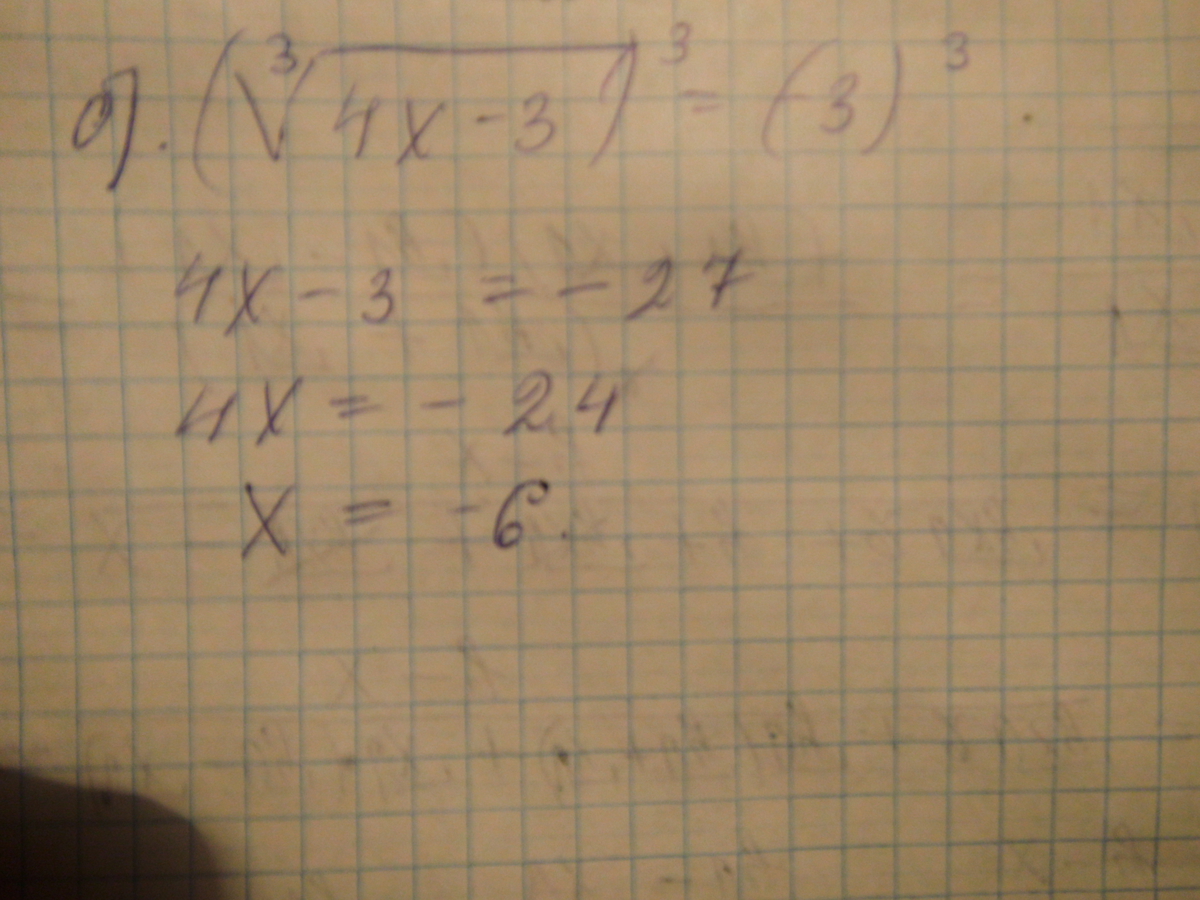 б). (∛(4x - 3))³ = (-3)³
4x - 3 = - 27
4x = - 24
x = - 6.